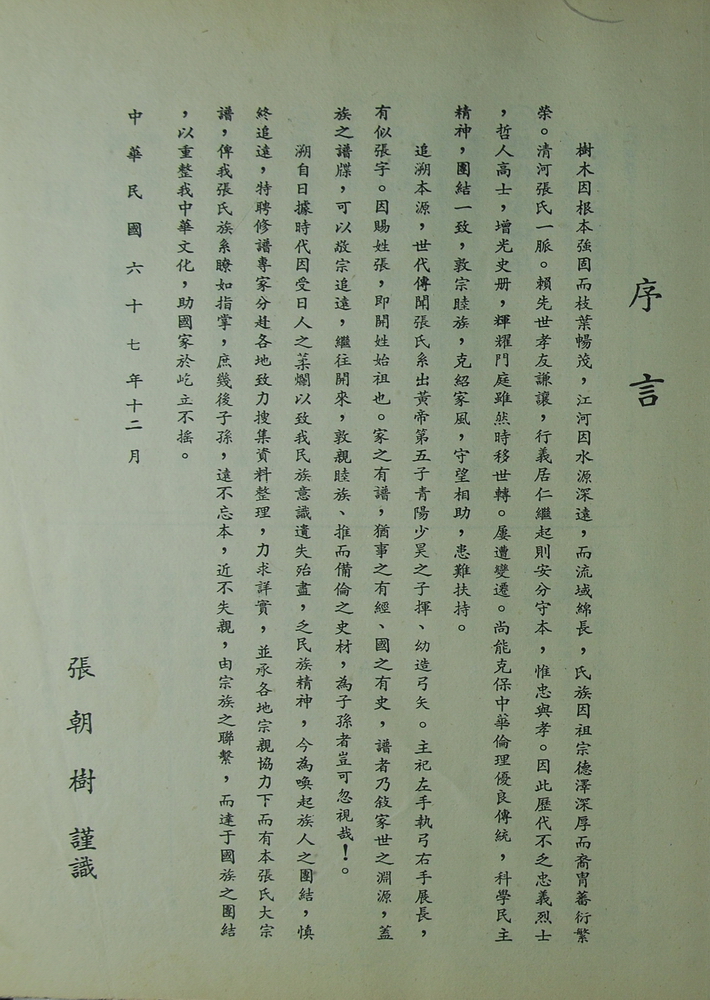 序言
樹木因根本強固而枝葉暢茂，江河因水源深遠，而流域綿長，氏族因祖宗德澤深厚而裔胄蕃衍繁
榮。清河張氏一脈。賴先世孝友謙讓，行義居仁繼起則安分守本，惟忠與孝。因此歷代不乏忠義烈士
，哲人高士，增光史册，輝耀門庭雖然時移世轉。屢遭變遷。尚能克保中華倫理優良傳統，科學民主
精神，團結一致，敦宗睦族，克紹家風，守望相助，患難扶持。
追溯本源，世代傳聞張氏系出黃帝第五子青陽少昊之子揮、幼造弓矢。主祀左手執弓右手展長，
有似張字。因賜姓張，即開姓始祖也。家之有譜，猶事之有經、國之有史，譜者乃敘家世之淵源，蓋
族之譜牒，可以敬宗追遠，繼往開來，敦親睦族、推而備倫之史材，為子孫者豈可忽視哉！。
溯自日據時代因受日人之荼爛以致我民族意識遺失殆盡，乏民族精神，今為喚起族人之團結，慎
終追遠，特聘修譜專家分赴各地致力搜集資料整理，力求詳實，並承各地宗親協力下而有本張氏大宗
譜，俾我張氏族系瞭如指掌，庶幾後子孫，遠不忘本，近不失親，由宗族之聯繫，而達于國族之團結
，以重整我中華文化，助國家於屹立不搖。
中華民國六十七年十二月
張朝樹謹識